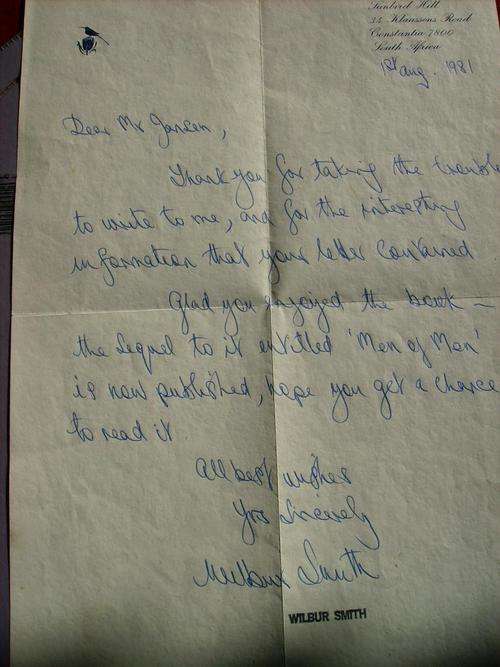 Sunbird Hill
34 Klaassens Road
Constantia 7800
South Africa
1st Aug. 1981
Dear Mr Jansen,
Thank you for taking the trouble
to write to me, and for the interesting
information that your letter contained
Glad you enjoyed the book –
the sequel to it entitled 'Men of Men'
is now published, hope you get a chance
to read it
All best wishes
Yrs Sincerely
Wilbur Smith
WILBUR SMITH